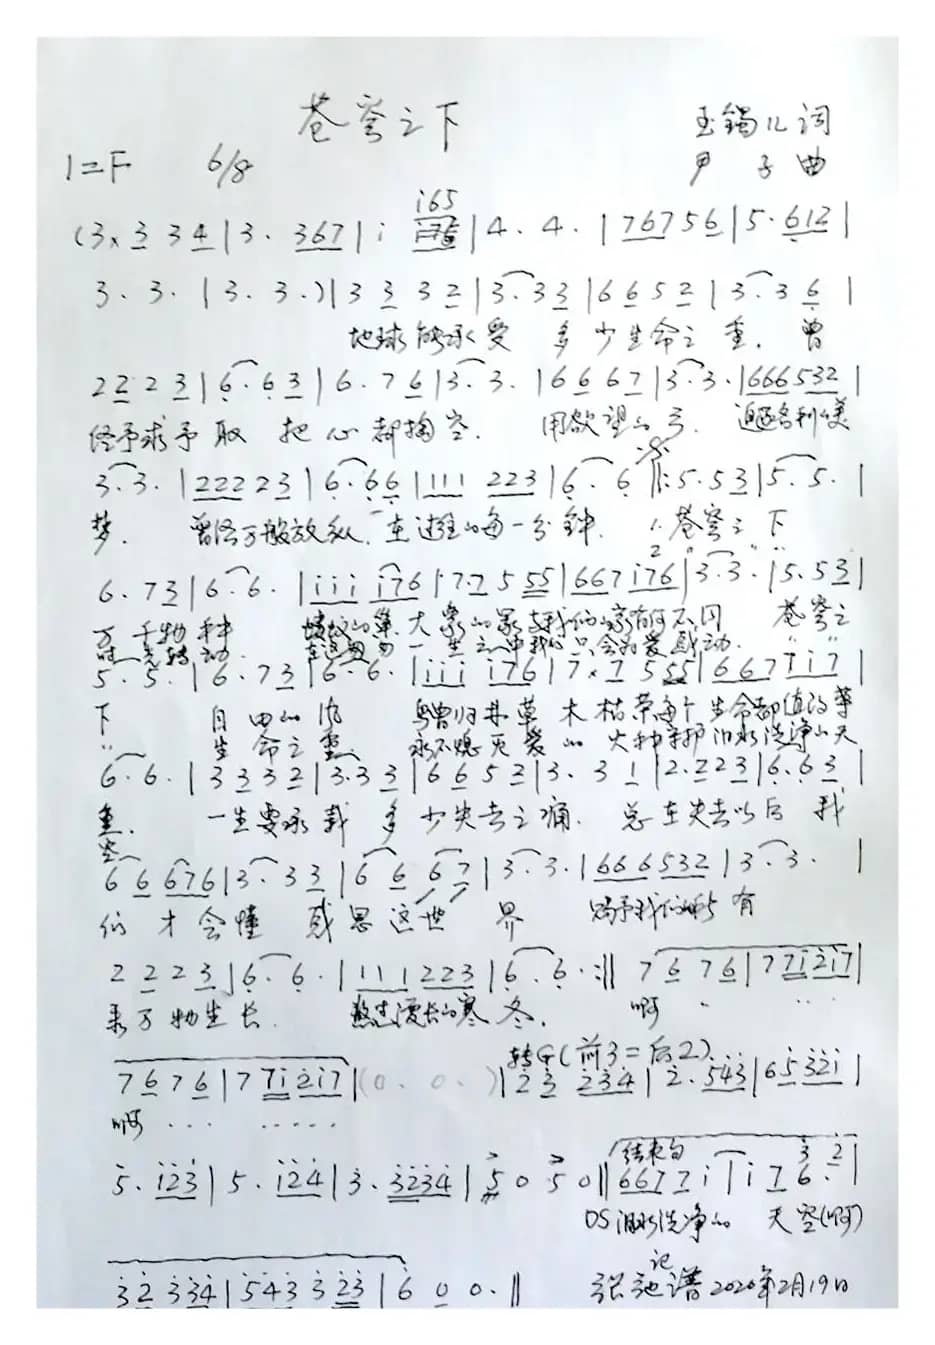 苍穹之下
玉镯儿词
1=F 6/8
尹子曲
i65
(3× 3 3 4 | 3 · 367 | i | 4 · 4 · | 767 5 6 | 5 · 612 |
3 · 3 · | 3 · 3 · ) | 3 3 3 2 | 3 · 3 3 | 6 6 5 2 | 3 · 3 6 |
地球能承受 多少生命之重. 曾
2 2 2 3 | 6 · 6 3 | 6 · 7 6 | 3 · 3 · | 6 6 6 7 | 3 · 3 · | 666 532 |
经予求予取 把心都掏空. 用欲望的弓. 追逐名利的美
3 · 3 · | 222 2 3 | 6 · 6 6 | 111 223 | 6 · 6 ‖: 5 · 5 3 | 5 · 5 · |
梦. 曾经万般放纵. 在过往的每一分钟. 1. 苍穹之下
2 " " "
6 · 7 3 | 6 · 6 · | iii i76 | 7·7 5 55 | 667 i76 | 3 · 3 · | 5 · 5 3 |
万千物种 的巢. 大象的冢与我们的家有何不同 苍穹之
时光转动. 一生之中我们只会为爱感动. " "
5 · 5 · | 6 · 7 3 | 6 · 6 · | iii i76 | 7×7 5 55 | 667 7i7 |
下 自由的风 草木枯荣每个生命都值得尊
" 生命之重 永不熄灭爱的火种 泪水洗净的天
6 · 6 · | 3 3 3 2 | 3 · 3 3 | 6 6 5 2 | 3 · 3 1 | 2 · 2 2 3 | 6 · 6 3 |
重. 一生要承载 多少失去之痛. 总在失去以后 我
空
6 6 676 | 3 · 3 3 | 6 6 6 7 | 3 · 3 · | 666 532 | 3 · 3 · |
们才会懂 感恩这世界 赐予我们的所有
2 2 2 3 | 6 · 6 · | 111 223 | 6 · 6 · :‖ 7 6 7 6 | 7 7i 2i7 |
万物生长. 熬过漫长的寒冬. 啊 · · · ·
转G(前3=后2)
7 6 7 6 | 7 7i 2i7 | (0 · 0 · ) | 2 3 234 | 2 · 543 | 6 5 32i |
啊 · · · · · · · ·
5 · i23 | 5 · i24 | 3 · 3234 | 5 0 5 0 ‖ 667 7 i | i 7 6 · |
结束句
3 2
DS 泪水洗净的 天空(啊)
3 2 334 | 543 3 23 | 6 0 0 · ‖
张池记谱 2020年2月19日